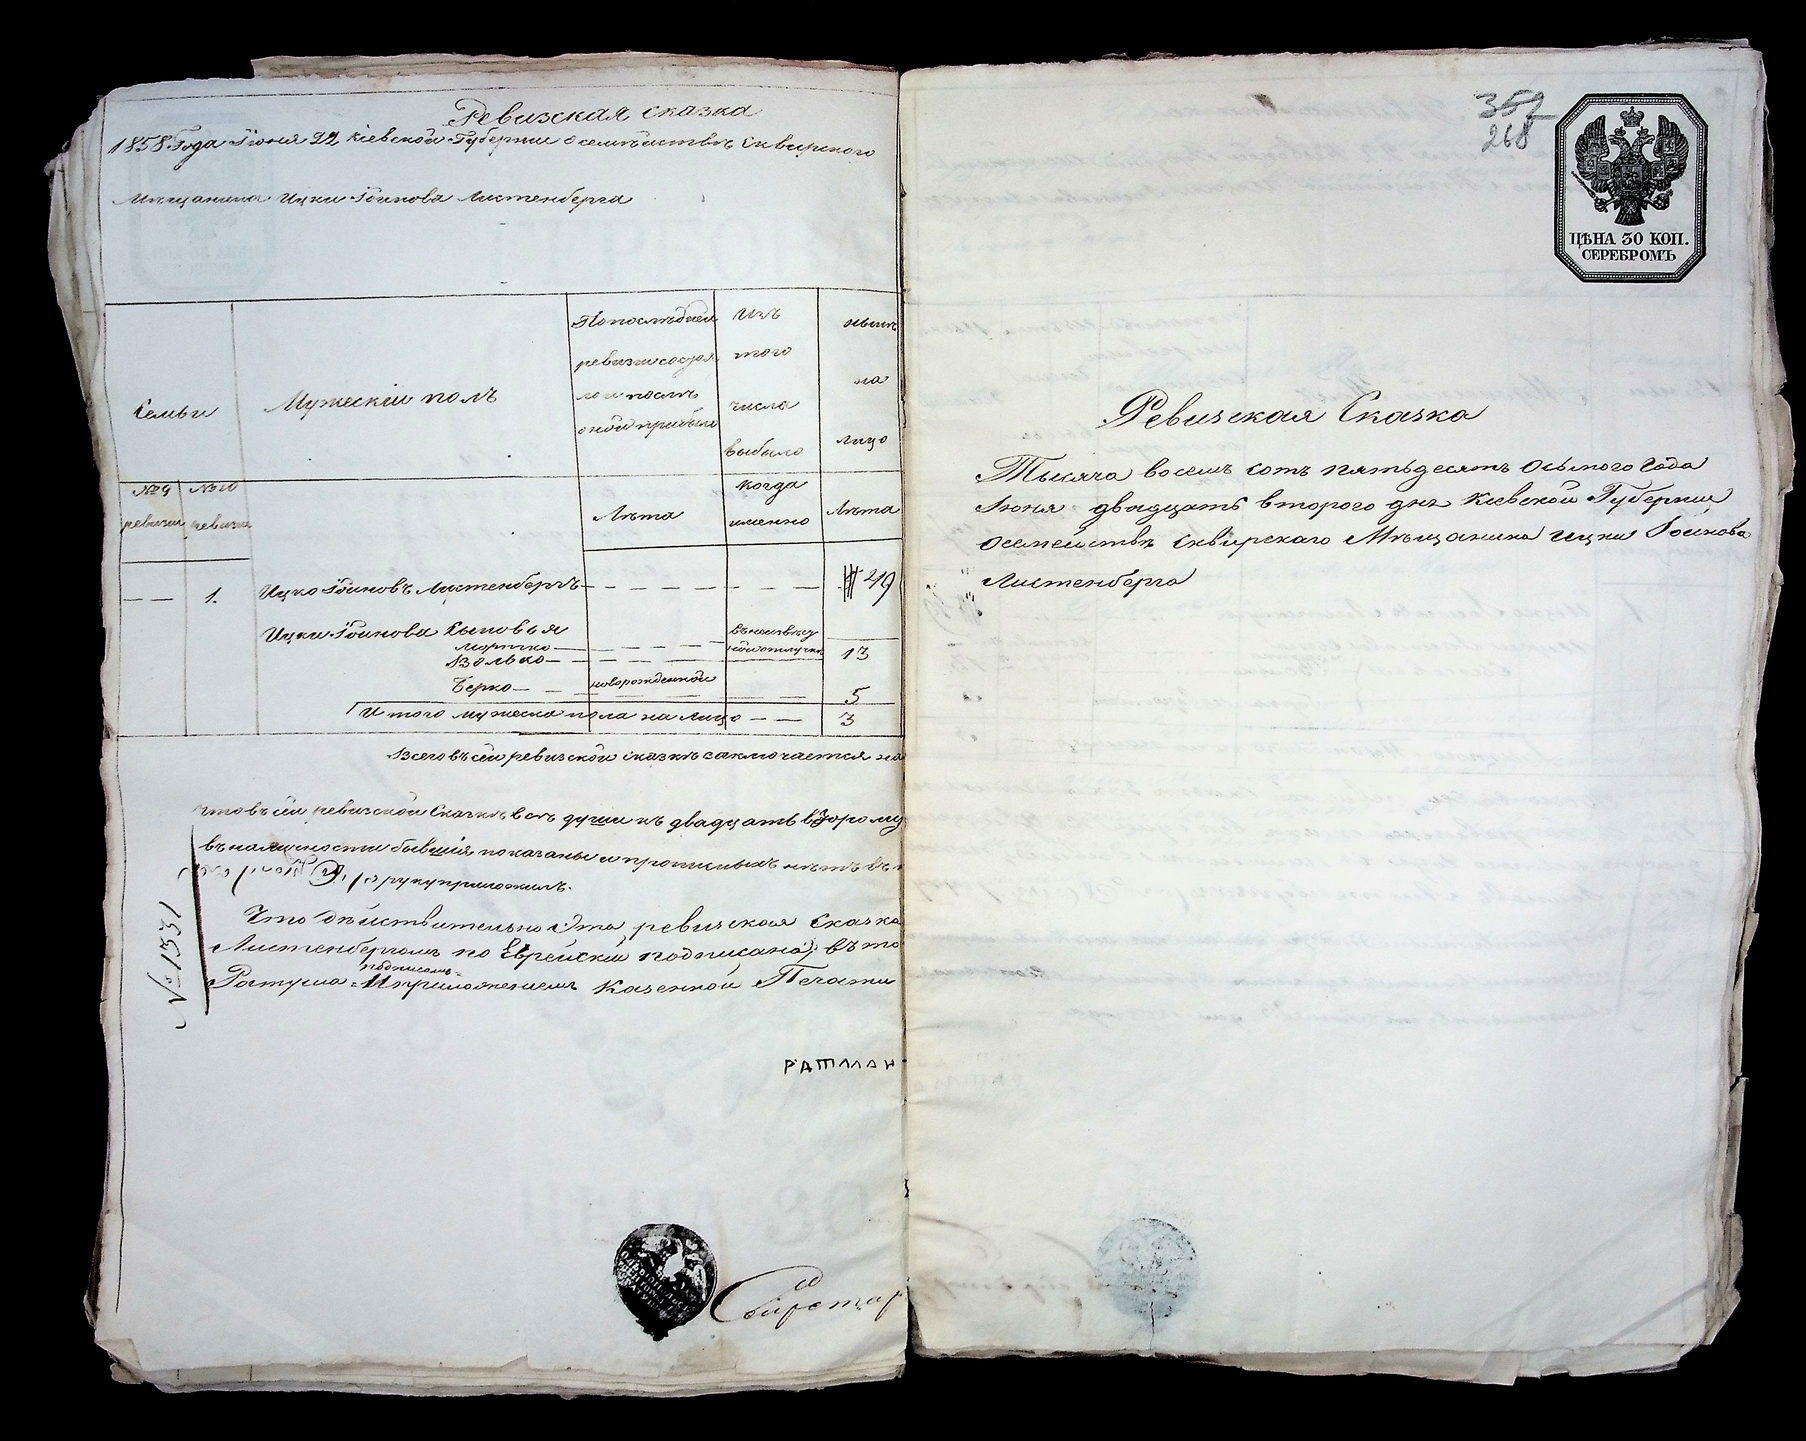 Ревизская сказка
1858 Года Іюня 22 Кіевской Губерніи о семействѣ Сквирского
Мѣщанина Ицки Гоинова Листенберга
Семьи
Мужескій полъ
По послѣдней
ревизіи состоя
ло и послѣ
оной прибыло
Изъ
того
числа
выбыло
нынѣ
на
лицо
№ 9
ревизіи
№ 10
ревизіи
Лѣта
когда
именно
Лѣта
1. Ицко Гоиновъ Листенбергъ 49
Ицки Гоинова Сыновья
въ неизвѣст
ной отлучкѣ
Волько 13
Берко новорожденной 5
Итого мужеска пола на лицо 3
Всего въ сей ревизской сказкѣ заключается на
что въ сей ревизской Сказкѣ всѣ души къ двадцать второму
въ наличности бывшія показаны и прописныхъ нѣтъ въ
руку приложилъ.
Что дѣйствительно Эта ревизская Сказка
Листенбергомъ по Еврейскій подписана, въ то
подписомъ
Ратуша И приложеніемъ Казенной Печати
№ 1331
РАТМАН
352
268
ЦѢНА 30 КОП.
СЕРЕБРОМЪ
Ревизская Сказка
Тысяча восемъ сотъ пятьдесятъ осьмого Года
Іюня двадцать второго дня Кіевской Губерніи
О семействѣ Сквирскаго Мѣщанина Ицки Гоинова
Листенберга